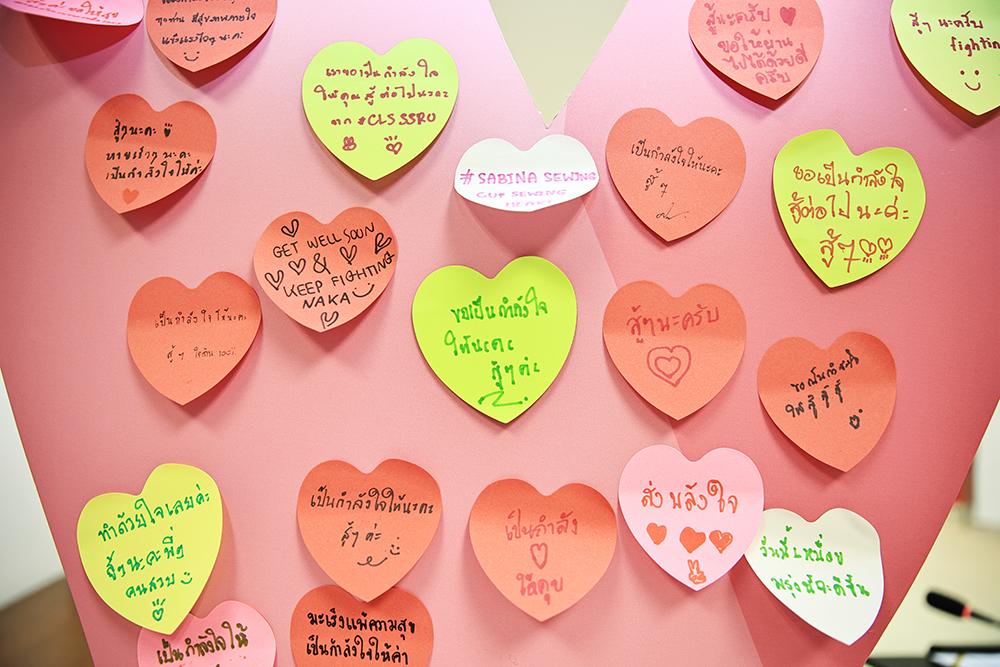 ทุกท่าน มีสุขภาพกายใจ
แข็งแรงไวๆ นะคะ
สู้นะครับ
ขอให้ผ่าน
ไปได้ด้วยดี
ครับ
สู้ๆ นะครับ
fightin
เราขอเป็นกำลังใจ
ให้คุณ สู้ต่อไปนะคะ
จาก #CLSSSRU
สู้ๆนะคะ
หายเร็วๆ นะคะ
เป็นกำลังใจให้ค่ะ
# SABINA SEWING
CUP SEWING
HEART
เป็นกำลังใจให้นะคะ
สู้ๆ
ขอเป็นกำลังใจ
สู้ต่อไปนะค่ะ
สู้ๆ
GET WELL SOON
&
KEEP FIGHTING
NAKA
เป็นกำลังใจให้นะคะ
สู้ๆ
ขอเป็นกำลังใจ
ให้นะคะ
สู้ๆค่ะ
สู้ๆนะครับ
ขอเป็นกำลังใจ
ให้ สู้ สู้ สู้
ทำด้วยใจเลยค่ะ
สู้ๆนะคะพี่ๆ
คนสวย
เป็นกำลังใจให้นะคะ
สู้ๆ ค่ะ
เป็นกำลัง
ให้คุณ
ส่งพลังใจ
วันนี้เหนื่อย
พรุ่งนี้จะดีขึ้น
เป็นกำลังใจให้
มะเร็งแพ้ความสุข
เป็นกำลังใจให้ค่า